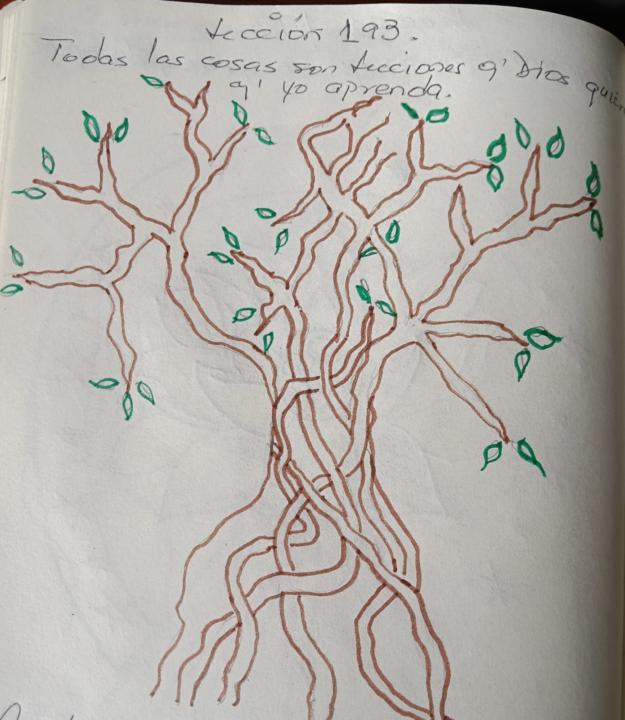 Lección 193.
Todas las cosas son lecciones q' Dios quier
q' yo aprenda.